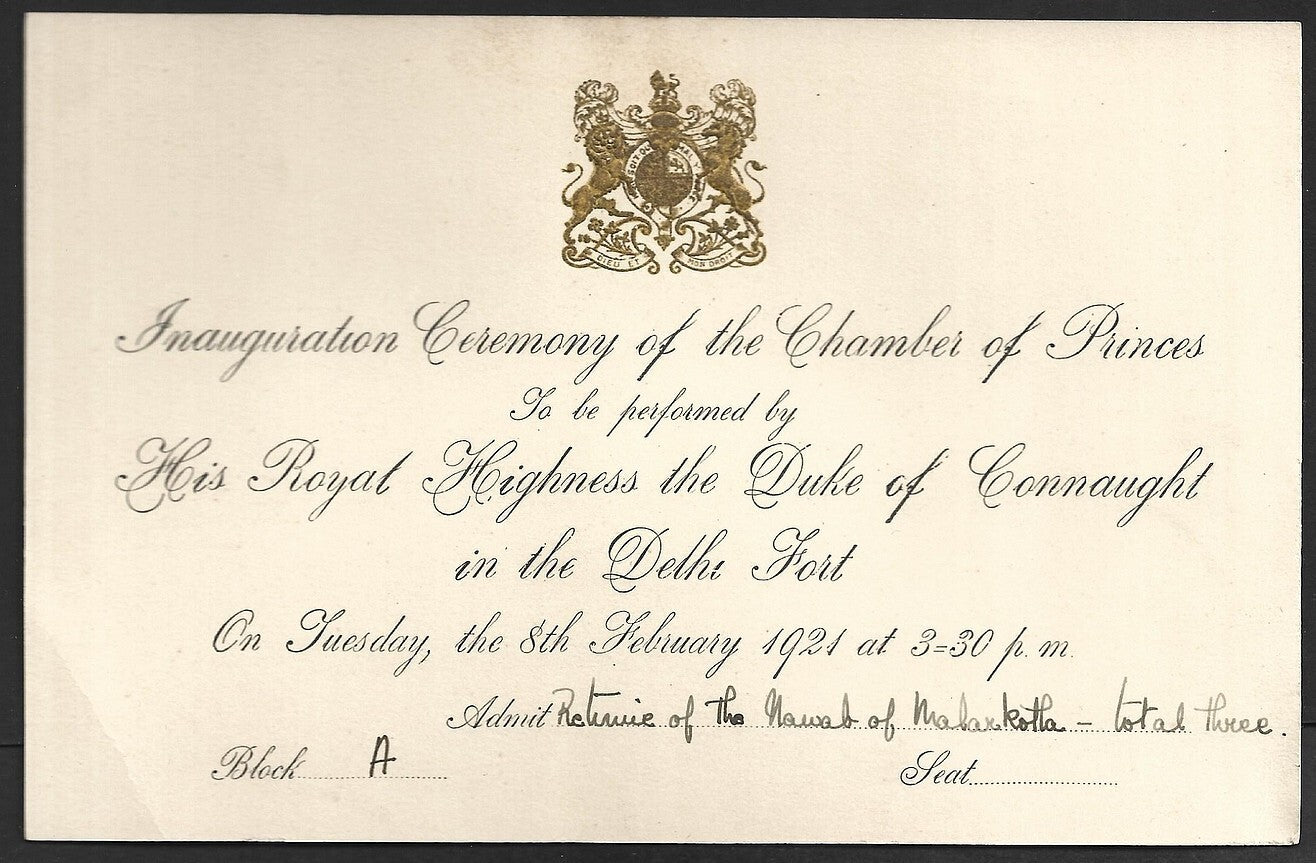 HONI SOIT QUI MAL Y PENSE
DIEU ET MON DROIT
Inauguration Ceremony of the Chamber of Princes
To be performed by
His Royal Highness the Duke of Connaught
in the Delhi Fort
On Tuesday, the 8th February 1921 at 3=30 p. m.
Admit Retinue of the Nawab of Malarkotla – total three.
Block A Seat